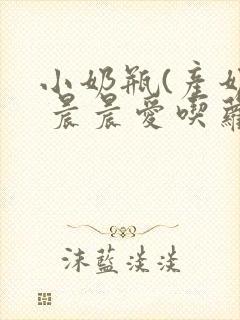 小奶瓶(産奶
晨晨愛喫蘿
沫藍淡淡